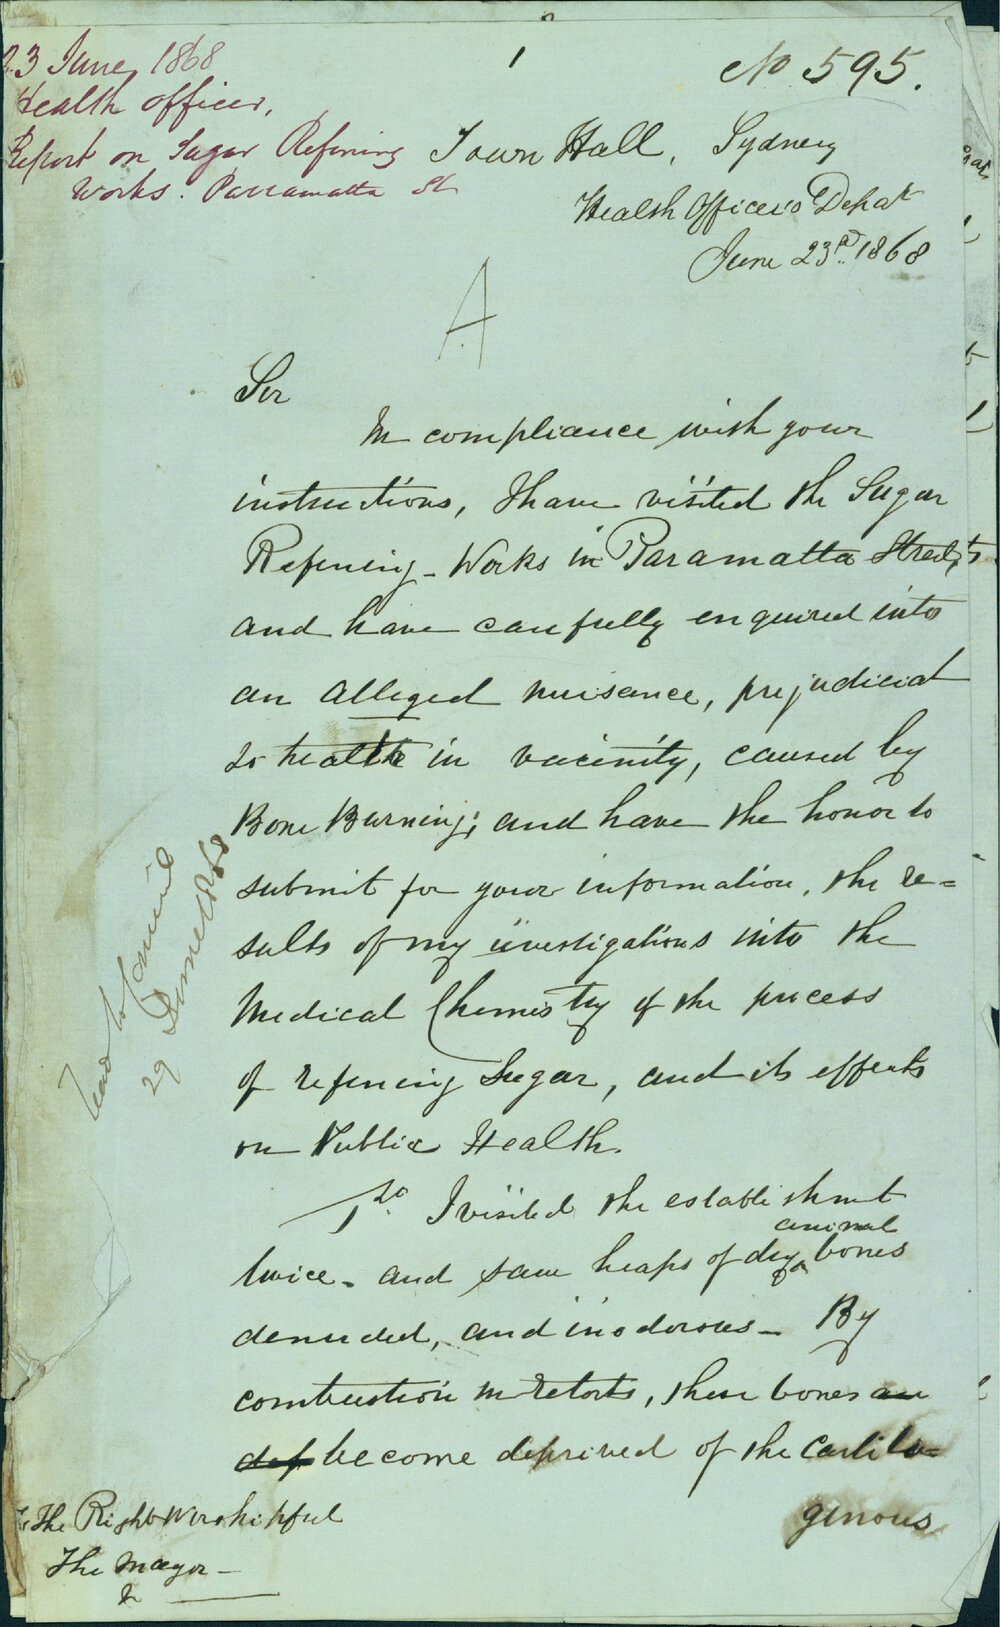 23 June 1868
Health officer,
Report on Sugar Refining
Works. Parramatta St
1
No 595.
Town Hall, Sydney
Health Officer's Depat
June 23rd. 1868
A
Sir
In compliance with your
instructions, I have visited the Sugar
Refining-Works in Paramatta Street,
and have carefully enquired into
an alleged nuisance, prejudicial
to health in vicinity, caused by
Bone Burning; and have the honor to
submit for your information, the re=
sults of my investigations into the
Medical Chemistry of the process
of refining Sugar, and its effects
on Public Health.
1o. I visited the establishment
animal
twice - and saw heaps of dry bones
denuded, and inodorous - By
combustion in retorts, these bones are
dep become deprived of the cartila=
ginous
To The Right Worshipful
The Mayor -
29 June 1868